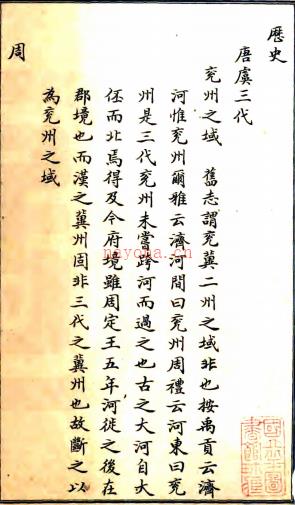 歷史
唐虞三代
兗州之域　舊志謂兗冀二州之域非也按禹貢云濟
河惟兗州爾雅云濟河間曰兗州周禮云河東曰兗
州是三代兗州未嘗跨河而過之也古之大河自大
伾而北焉得及今府境雖周定王五年河徙之後在
郡境也而漢之冀州固非三代之冀州也故斷之以
為兗州之域
周
nayona.cn